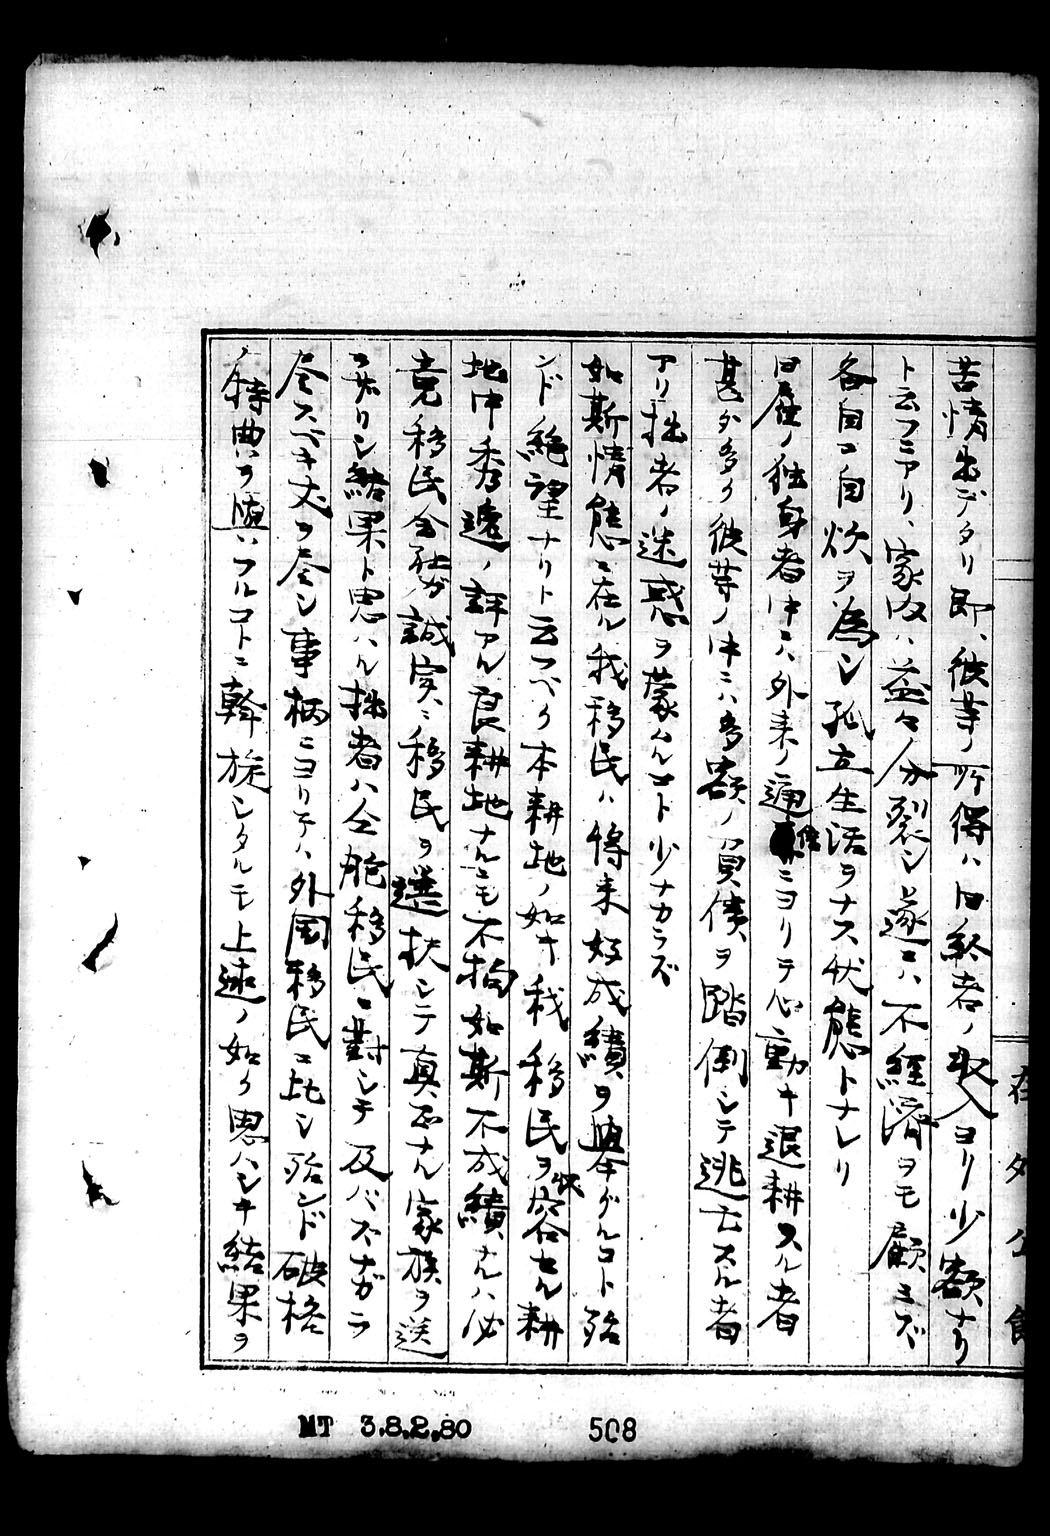 在外公館
苦情出デタリ即、彼等ノ所得ハ日給者ノ収入ヨリ少額ナリ
ト云フニアリ、家内ハ益々分裂シ遂ニハ不経済ヲモ顧ミズ
各自ニ自炊ヲ為シ孤立生活ヲナス状態トナレリ
日雇ノ独身者中ニハ外来ノ通信ニヨリテ心動キ退耕スル者
甚ダ多ク彼等ノ中ニハ多額ノ負債ヲ踏倒シテ逃亡スル者
アリ拙者ノ迷惑ヲ蒙ムルコト少ナカラズ
如斯情態ニ在ル我移民ハ将来好成績ヲ挙グルコト殆
ンド絶望ナリト云フベク本耕地ノ如キ我移民ヲ収容セル耕
地中秀逸ノ評アル良耕地ナルニモ不拘如斯不成績ナルハ必
竟移民会社ガ誠実ニ移民ヲ選択シテ真正ナル家族ヲ送
ラザリシ結果ト思ハル拙者ハ仝胞移民ニ対シテ及バズナガラ
尽スベキ丈ヲ尽シ事柄ニヨリテハ外国移民ニ比シ殆ンド破格
ノ特典ヲ与ハフルコトニ斡旋シタルモ上述ノ如ク思ハシキ結果ヲ
MT 3.8.2.80
508